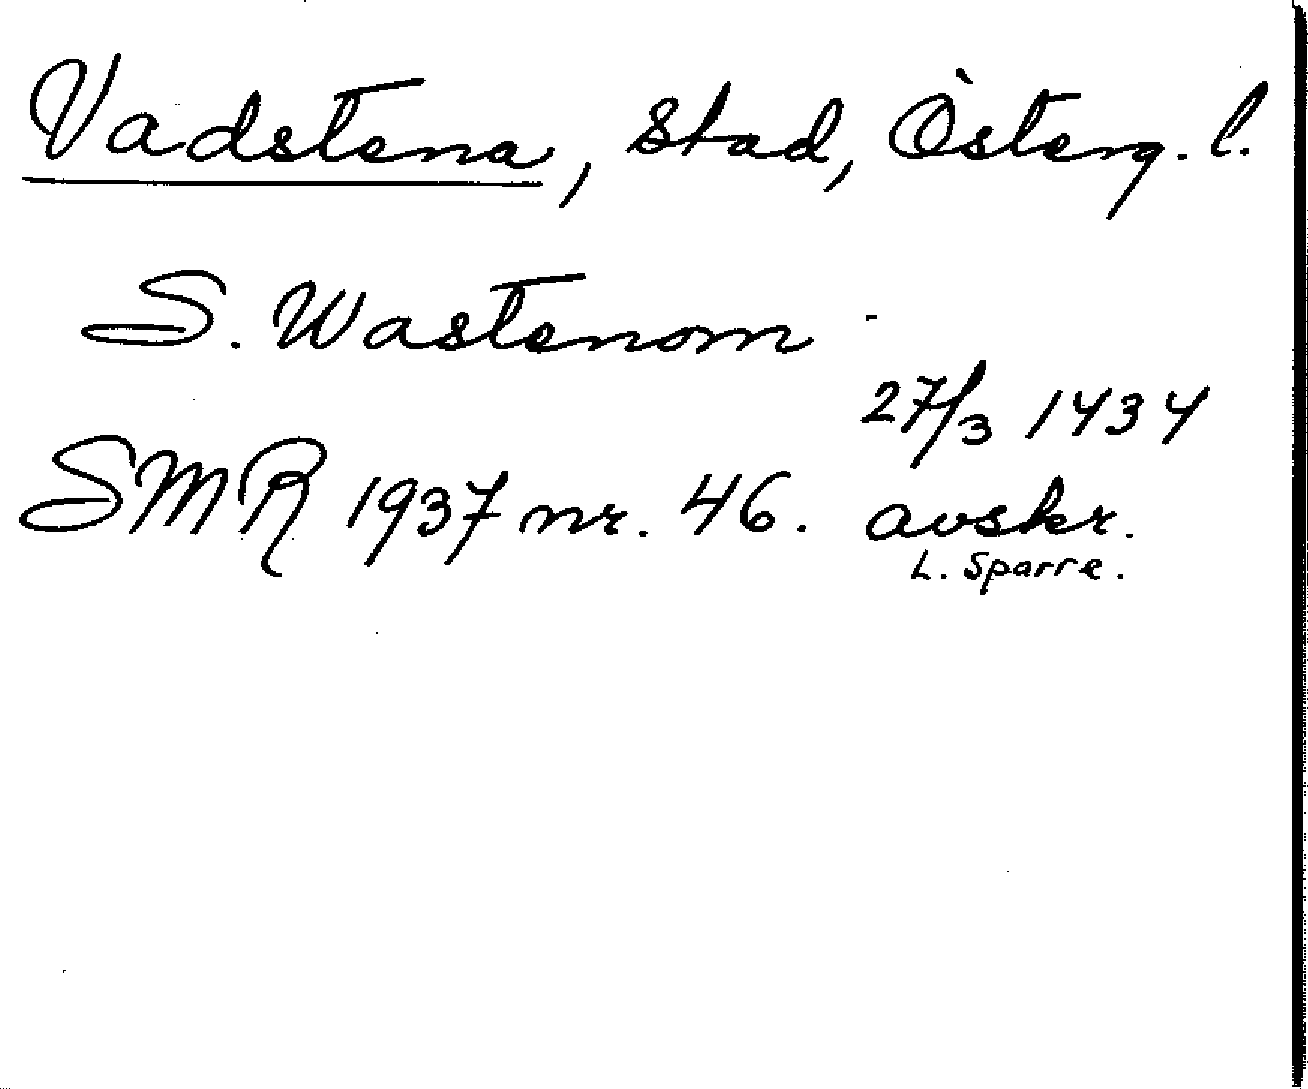 Vadstena, stad, Österg. l.
S. Wastenom -
27/3 1434
SMR 1937 nr. 46. avskr.
L. Sparre.